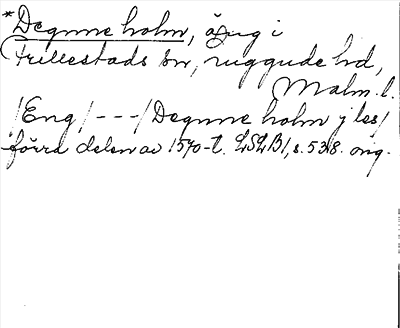 *Degnne holm, äng i
Frillestads sn, Luggude hd,
Malm. l.
/Eng/ ---/Degnne holm j les/
förra delen av 1570-t. LSLB1, s. 538. orig.